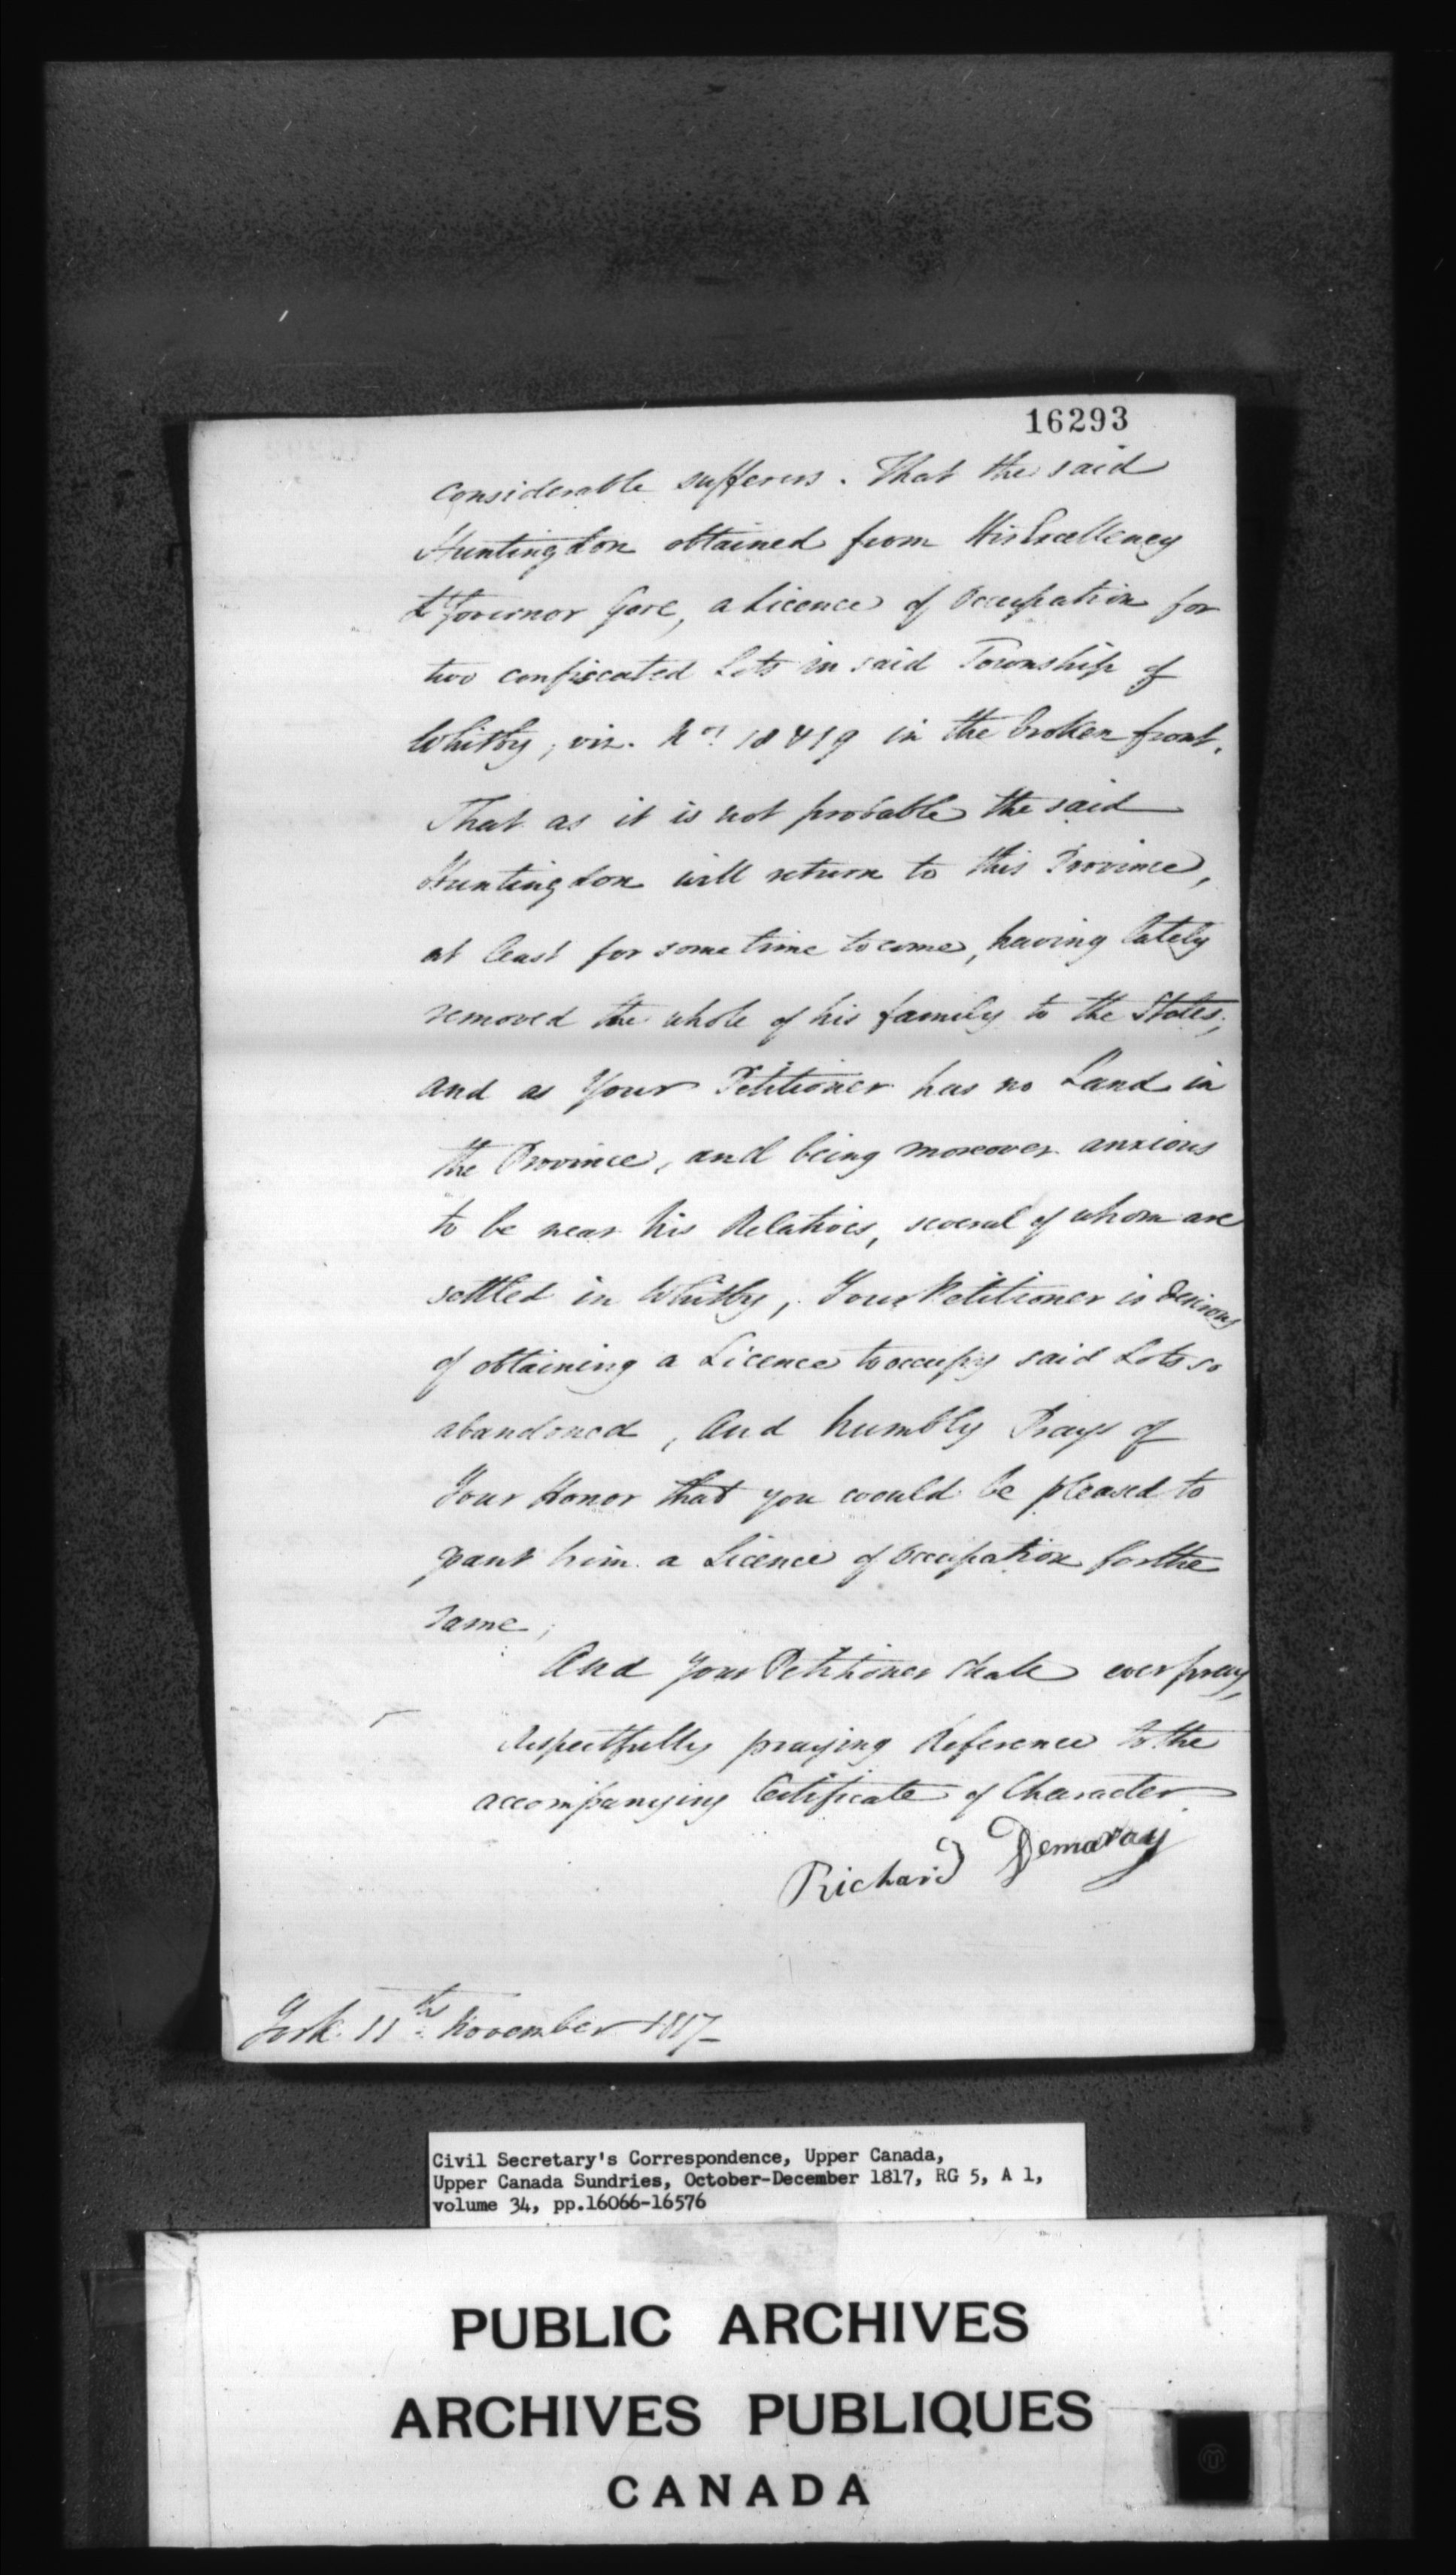 16293
considerable sufferers. That the said
Huntingdon obtained from His Excellency
Lt Governor Gore, a Licence of Occupation for
two confiscated Lots in said Township of
Whitby, viz. Nos. 18 & 19 in the broken front.
That as it is not probable the said
Huntingdon will return to this Province,
at least for some time to come, having lately
removed the whole of his family to the States;
and as Your Petitioner has no Land in
the Province, and being moreover anxious
to be near his Relatives, several of whom are
settled in Whitby, Your Petitioner is desirous
of obtaining a Licence to occupy said Lots so
abandoned, And humbly Prays of
Your Honor that you would be pleased to
grant him a Licence of Occupation for the
same;
And Your Petitioner shall ever pray,
Respectfully praying Reference to the
accompanying Certificate of Character
Richard Demaray
York 11th November 1817
Civil Secretary's Correspondence, Upper Canada,
Upper Canada Sundries, October-December 1817, RG 5, A 1,
volume 34, pp.16066-16576
PUBLIC ARCHIVES
ARCHIVES PUBLIQUES
CANADA